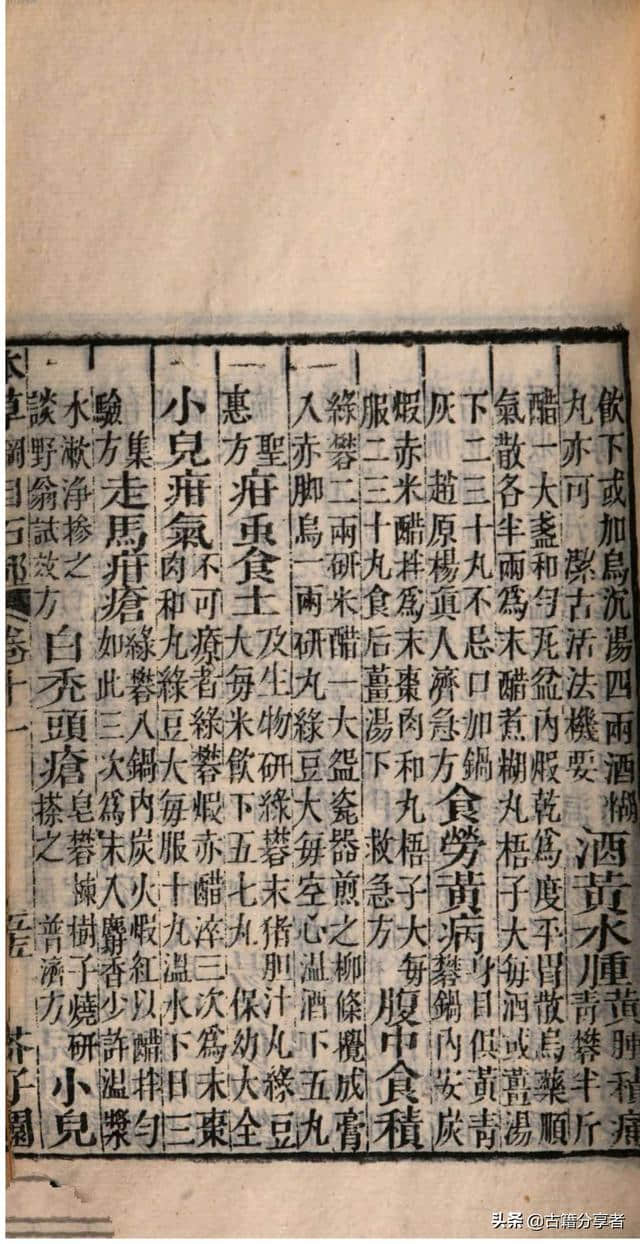 飲下或加烏沉湯四兩酒糊
丸亦可 潔古活法機要
酒黃水腫
黃腫積痛
青礬半斤
醋一大盞和勻瓦盆內煆乾為度平胃散烏藥順
氣散各半兩爲末醋煮糊丸梧子大每酒或薑湯
下二三十丸不忌口加鍋
灰 趙原楊眞人濟急方
食勞黃病
身目俱黃青
礬鍋內安炭
煆赤米醋拌爲末棗肉和丸梧子大每
服二三十丸食后薑湯下 救急方
腹中食積
綠礬二兩研米醋一大盌瓷器煎之柳條攪成膏
入赤脚烏一兩研丸綠豆大每空心温酒下五丸
聖
惠方
疳虫食土
及生物研綠礬末猪胆汁丸綠豆
大每米飲下五七丸 保幼大全
小兒疳氣
不可療者綠礬煆赤醋淬三次爲末棗
肉和丸綠豆大每服十丸溫水下日三
集
驗方
走馬疳瘡
綠礬入鍋內炭火煆紅以醋拌勻
如此三次爲末入麝香少許温漿
水漱淨摻之
談野翁試效方
白禿頭瘡
皂礬楝樹子燒研
搽之 普濟方
小兒
本草綱目石部 卷十一 五五 芥子園
头条@古籍分享者